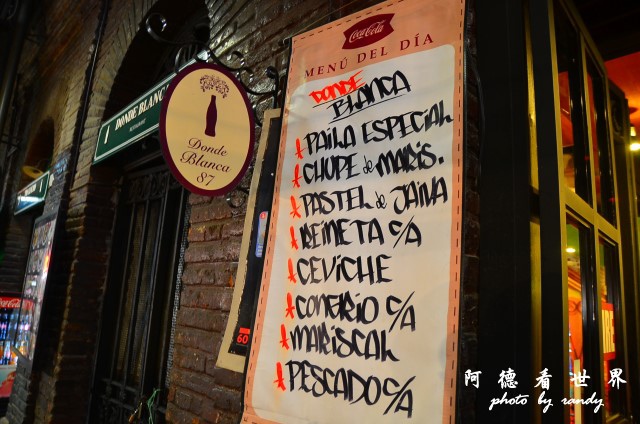 Coca-Cola
MENÚ DEL DÍA
DONDE
BLANCA
PAILA ESPECIAL
CHUPE de MARIS.
PASTEL de JAIVA
REINETA C/A
CEVICHE
CONGRIO C/A
MARISCAL
PESCADO C/A
DONDE BLANCA
RESTAURANT
Donde
Blanca
87
60
Coca-Cola
阿德看世界
photo by randy